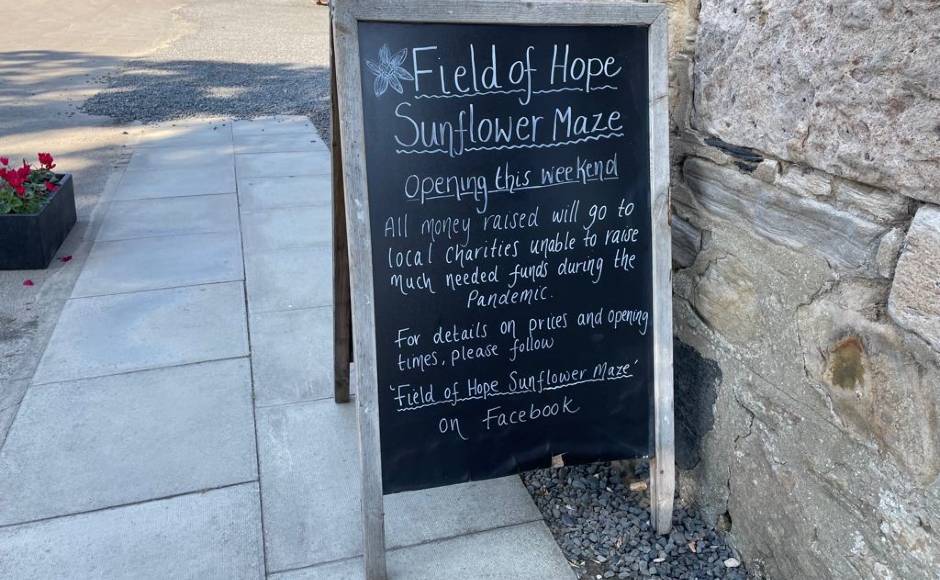 Field of Hope
Sunflower Maze
opening this weekend
All money raised will go to
local Charities unable to raise
Much needed funds during the
Pandemic.
For details on prices and opening
times, please follow
'Field of Hope Sunflower Maze'
on Facebook